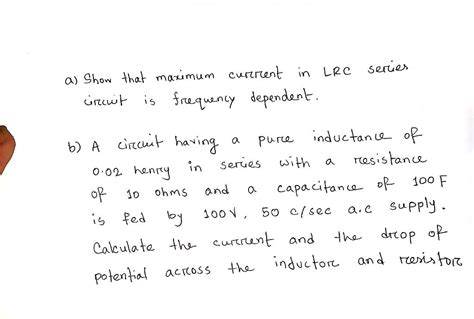 a) Show that maximum current in LRC series
circuit is frequency dependent.
b) A circuit having a pure inductance of
0.02 henry in series with a resistance
of 10 ohms and a capacitance of 100 F
is fed by 100V, 50 c/sec a.c supply.
Calculate the current and the drop of
potential across the inductor and resistor